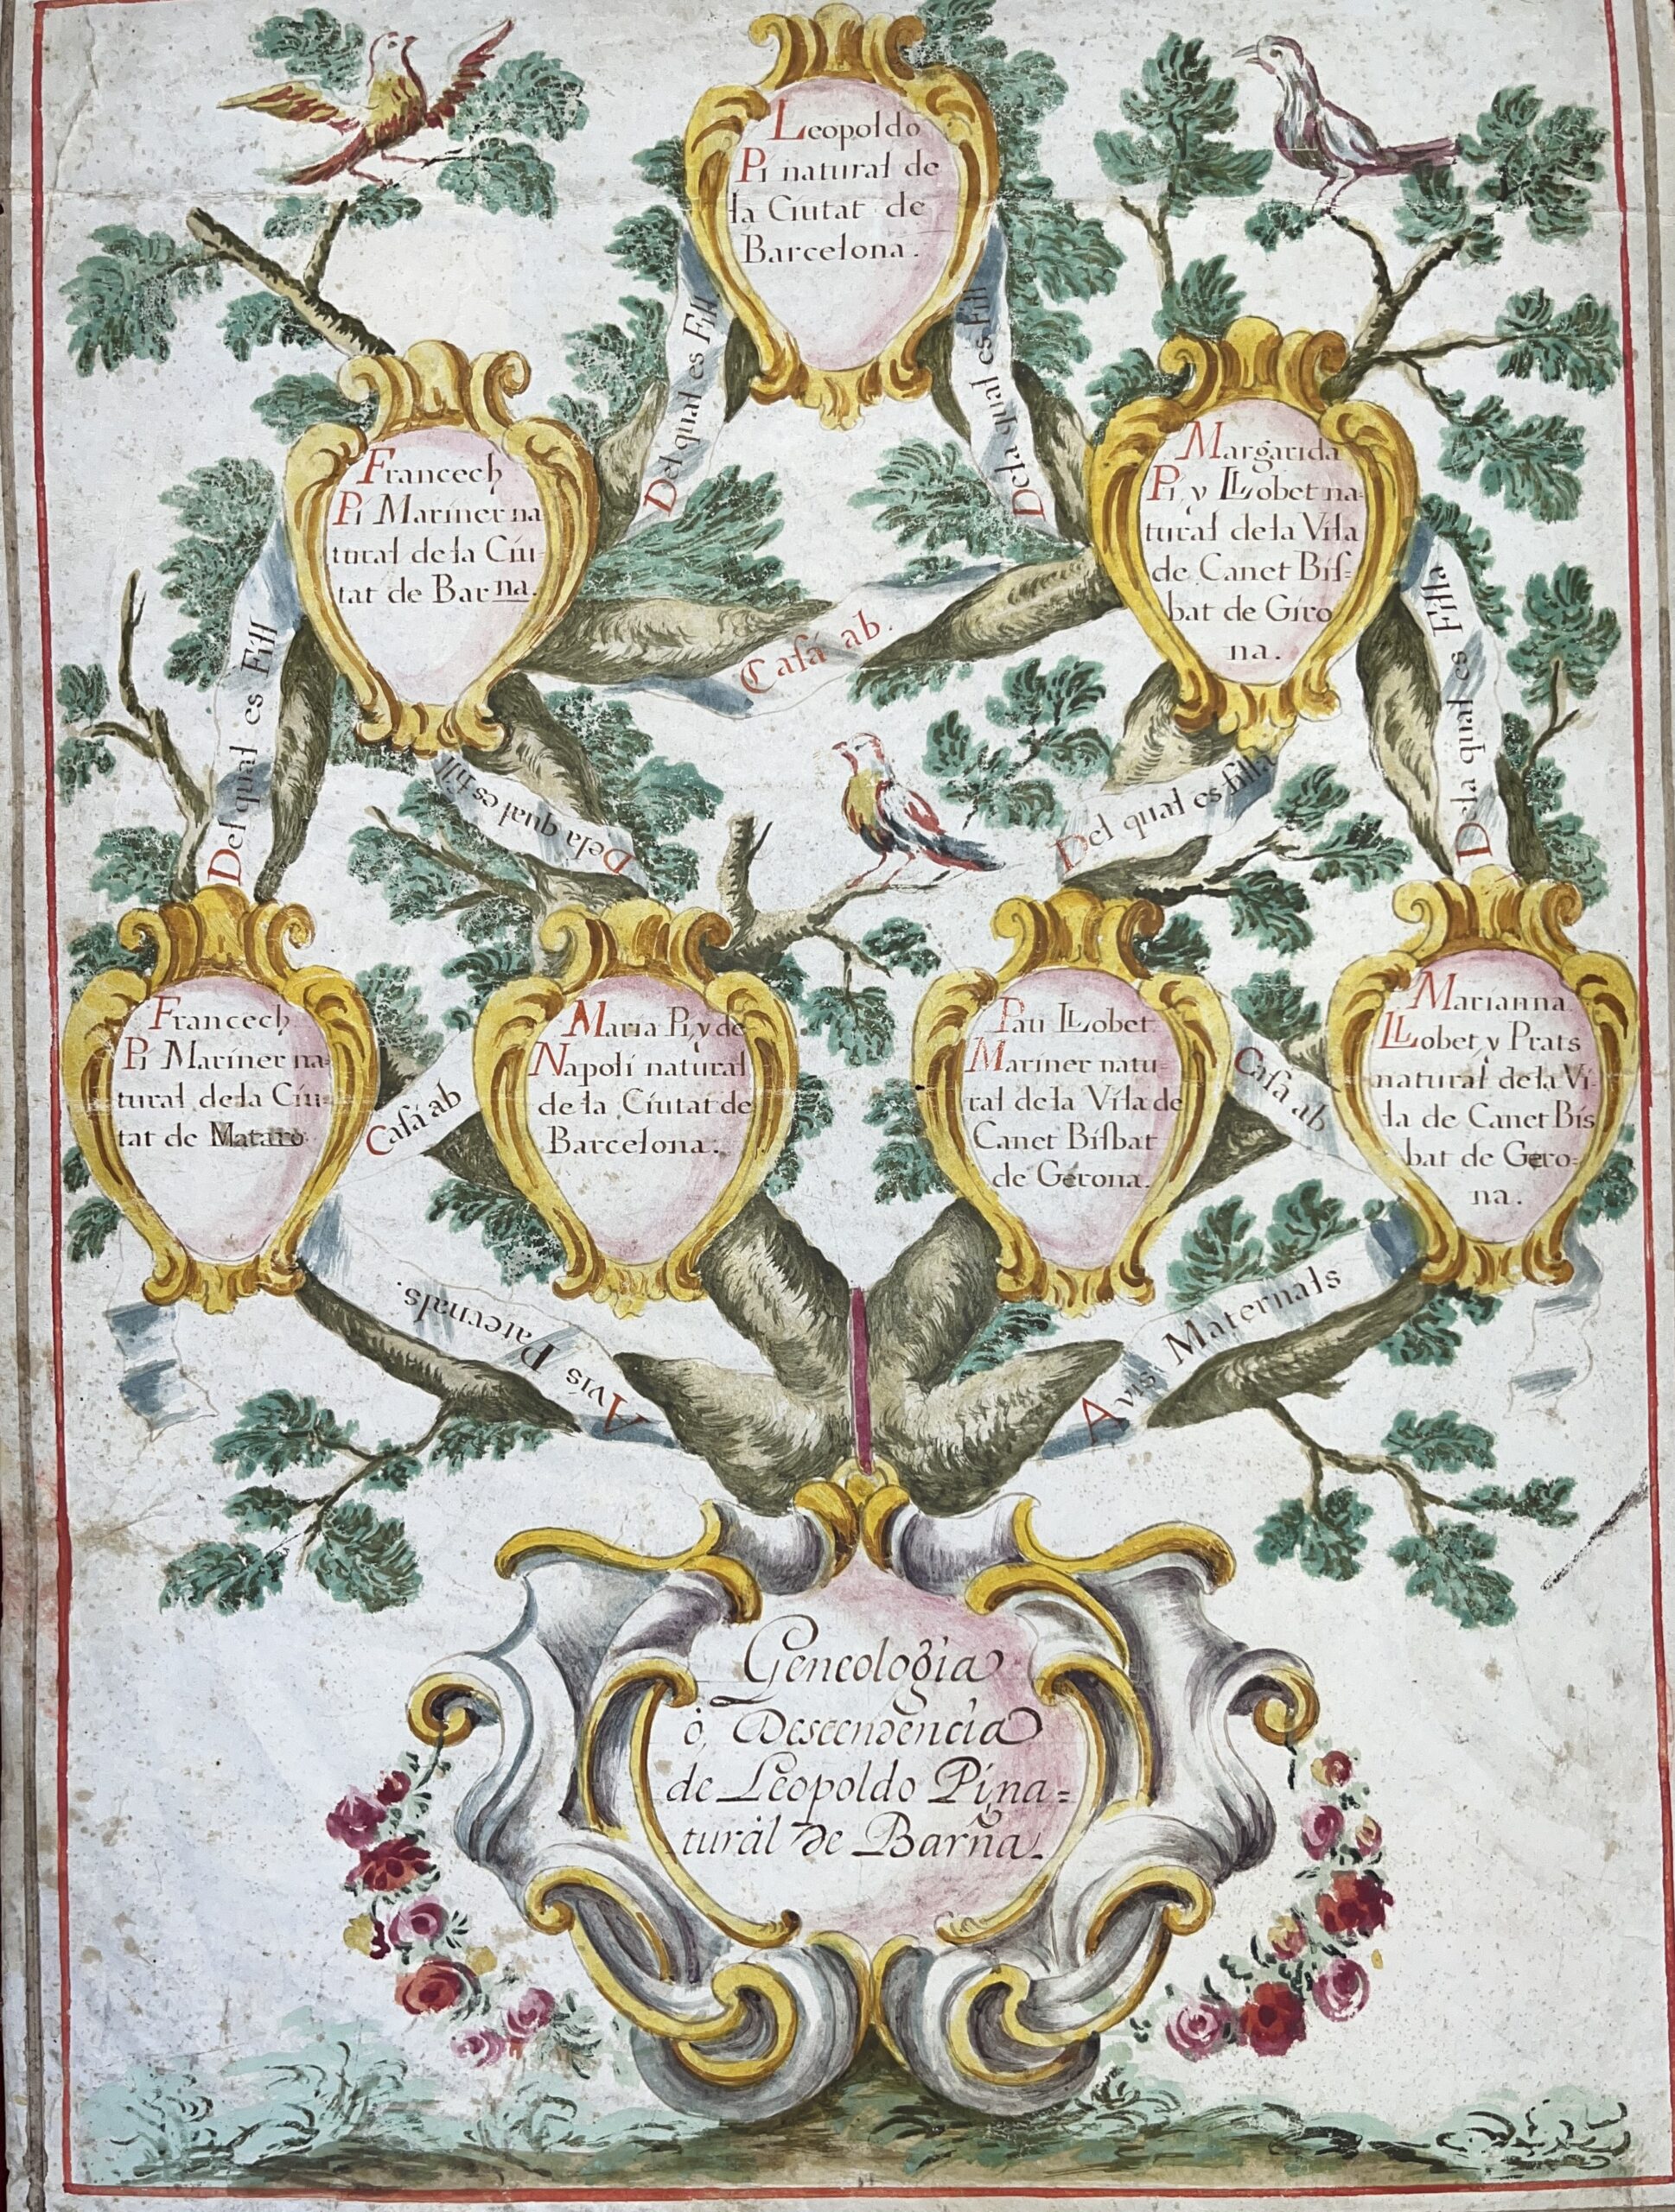 Leopoldo
Pi natural de
la Ciutat de
Barcelona.
Del qual es Fill
Dela qual es Fill
Francech
Pi Mariner na
tural de la Ciu-
tat de Barna.
Margarida
Pi, y LLobet na=
tural de la Vila
de Canet Bis=
bat de Giro
na.
Casá ab.
Del qual es Fill
Dela qual es fill
Del qual es filla
Dela qual es Filla
Francech
Pi Mariner na=
tural de la Ciu-
tat de Mataro
Casá ab
Maria Pi, y de
Napoli natural
de la Ciutat de
Barcelona.
Pau LLobet
Mariner natu-
ral de la Vila de
Canet Bisbat
de Gerona.
Casa ab
Marianna
LLobet y Prats
natural de la Vi-
la de Canet Bis
bat de Gero=
na.
Avis Paternals.
Avis Maternals
Geneologia
ò, Descendencia
de Leopoldo Pi na=
tural de Barña.